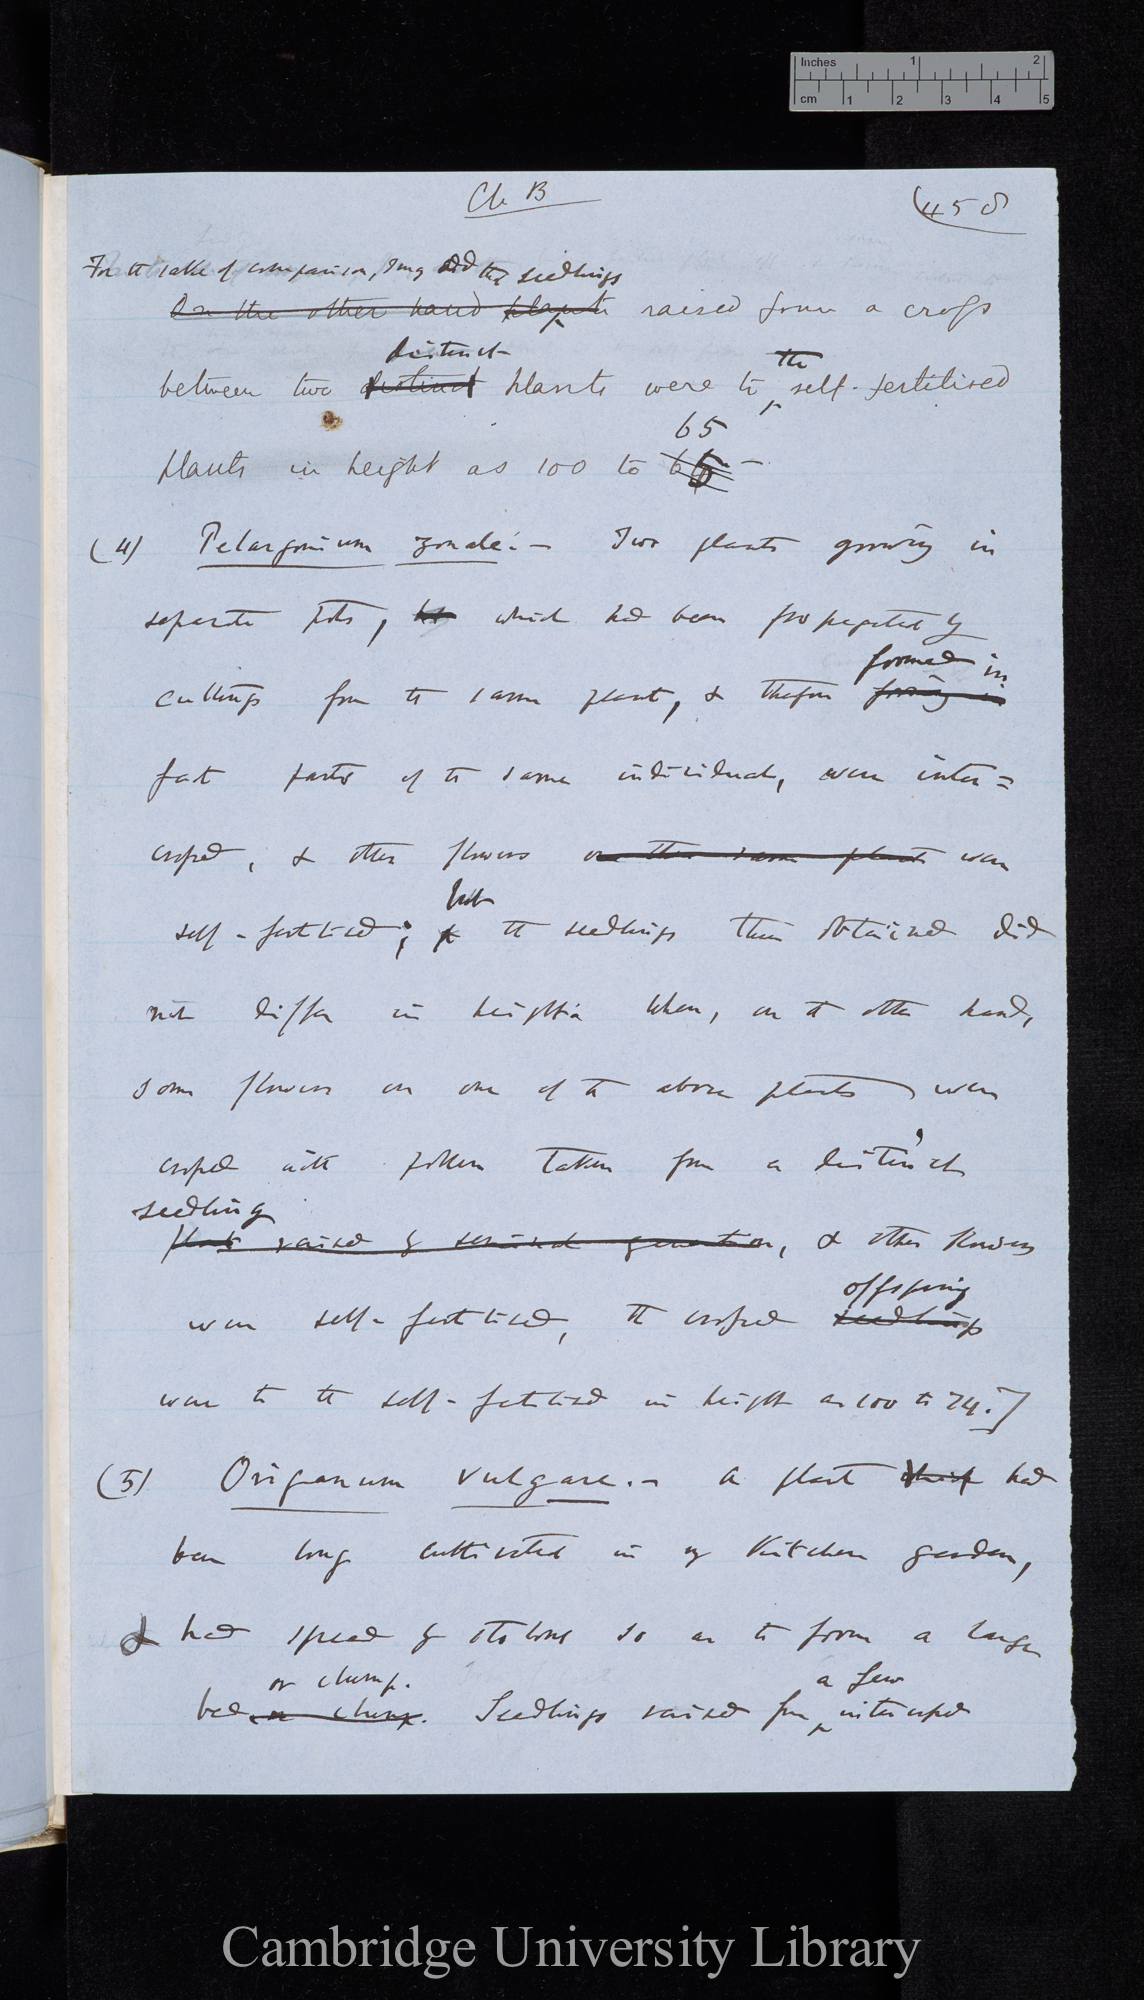 Inches 1 2
cm 1 2 3 4 5
Ch B
458
For the sake of comparison, I may add the seedlings
On the other hand plants raised from a cross
distinct
between two distinct plants were to the self-fertilised
65
plants in height as 100 to
(4) Pelargonium zonale:— Two plants growing in
separate pots, which had been propagated by
formed in
cuttings from the same plant, & therefore forming in
fact parts of the same individual, were inter=
crossed, & other flowers on the same plants were
but
self-fertilised; the seedlings thus obtained did
not differ in height. When, on the other hand,
some flowers on one of the above plants were
crossed with pollen taken from a distinct
seedling
plant raised by seminal generation, & other flowers
offspring
were self-fertilised, the crossed seedlings
were to the self-fertilised in height as 100 to 74.]
(5) Origanum vulgare.— A plant which had
been long cultivated in my kitchen garden,
& had spread by stolons so as to form a large
or clump. a few
bed or clump. Seedlings raised from intercrossed
Cambridge University Library